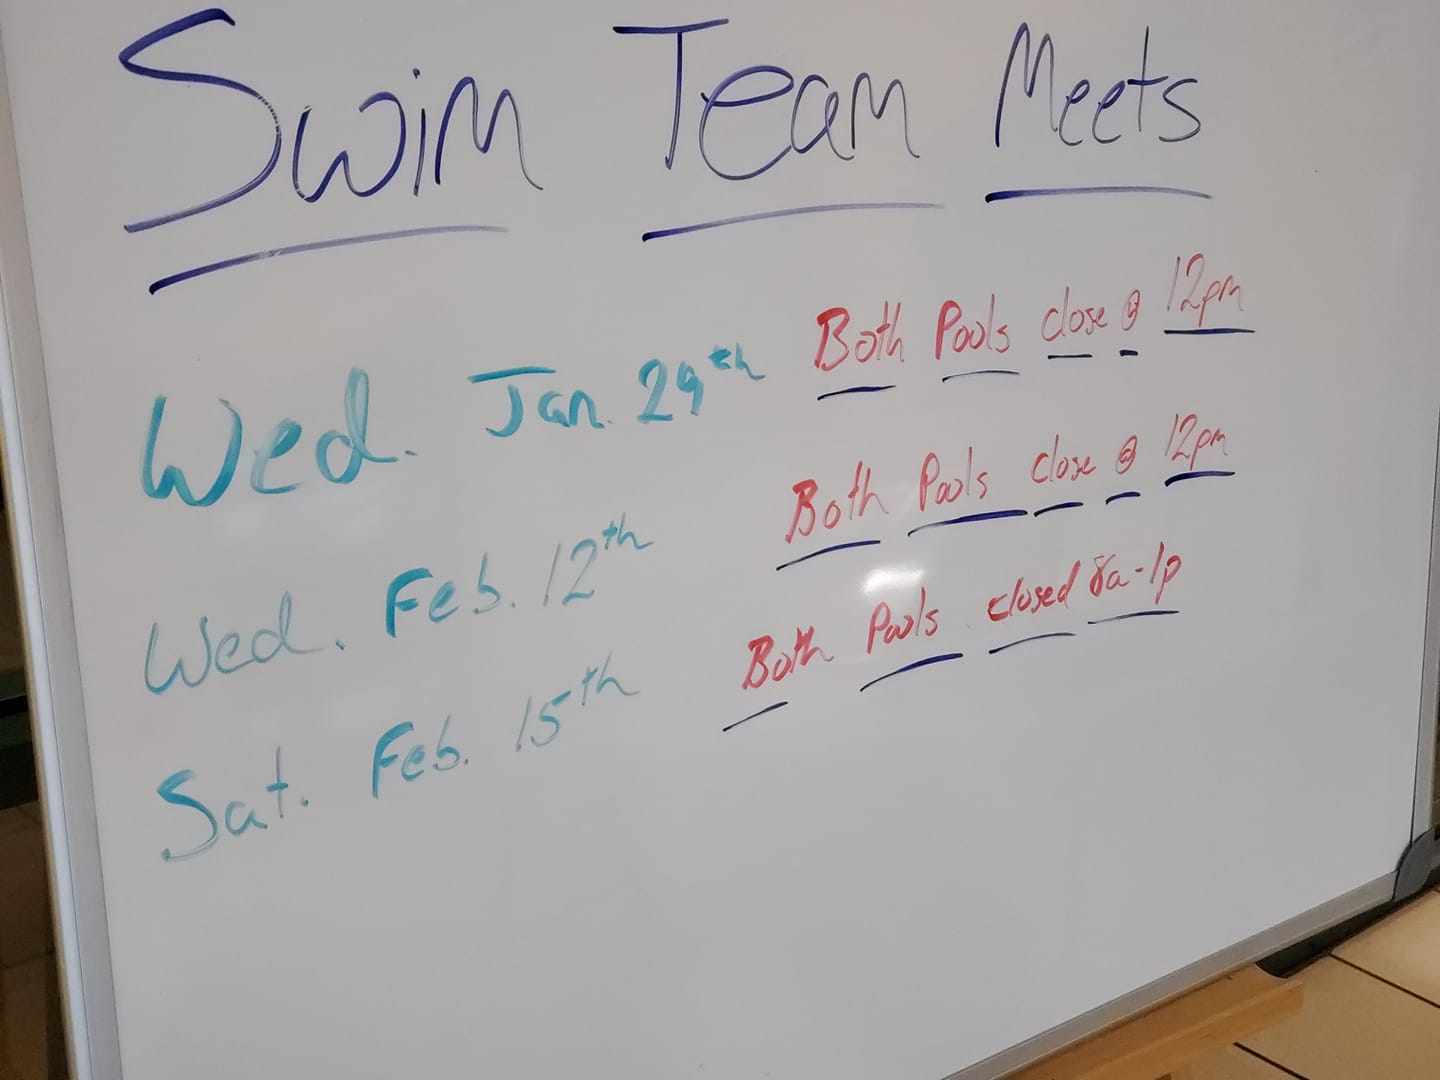 Swim Team Meets
Wed. Jan. 29th Both Pools close @ 12pm
Wed. Feb. 12th Both Pools close @ 12pm
Sat. Feb. 15th Both Pools closed 8a-1p